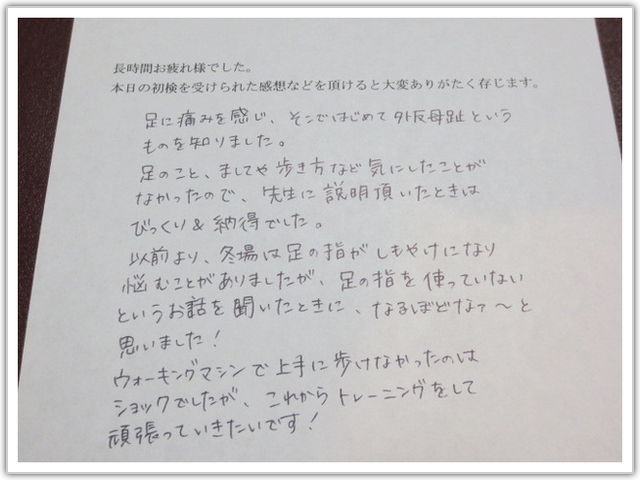 長時間お疲れ様でした。
本日の初検を受けられた感想などを頂けると大変ありがたく存じます。
足に痛みを感じ、そこではじめて外反母趾という
ものを知りました。
足のこと、ましてや歩き方など気にしたことが
なかったので、先生に説明頂いたときは
びっくり&納得でした。
以前より、冬場は足の指がしもやけになり
悩むことがありましたが、足の指を使っていない
というお話を聞いたときに、なるほどなァ〜と
思いました!
ウォーキングマシンで上手に歩けなかったのは
ショックでしたが、これからトレーニングをして
頑張っていきたいです!